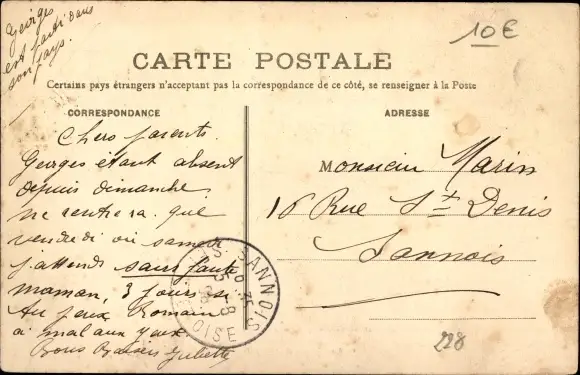 Georges
est parti dans
son pays.
10€
CARTE POSTALE
Certains pays étrangers n'acceptant pas la correspondance de ce côté, se renseigner à la Poste
CORRESPONDANCE
Chers parents.
Georges étant absent
depuis dimanche
ne rentrera que
vendredi ou samedi
j'attends sans faute
maman, 3 jours si
Au Romain
a mal aux yeux.
Bons Baisers Juliette
ADRESSE
Monsieur Marin
16 Rue St Denis
Sannois
SANNOIS
OISE
228